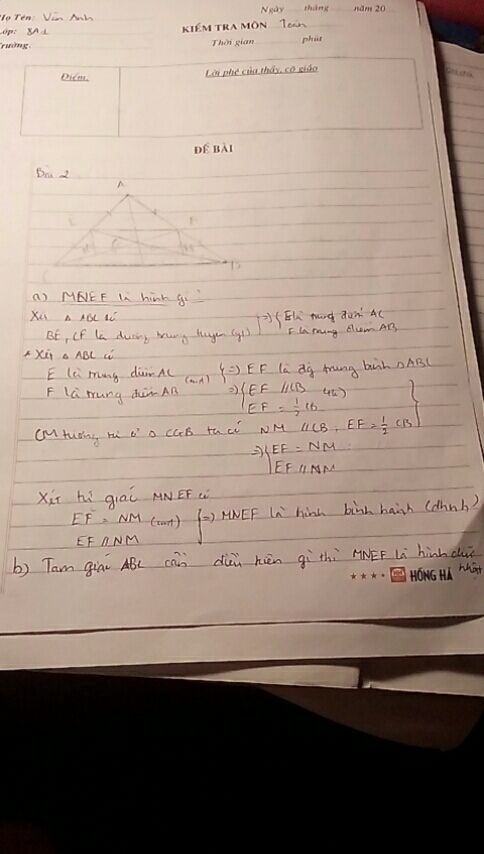 Ngày tháng năm 20
Họ Tên: Vân Anh
Lớp: 8A1
KIỂM TRA MÔN Toán
Trường
Thời gian phút
Điểm.
Lời phê của thầy, cô giáo
ĐỀ BÀI
Bài 2
A
E F
M G N
C B
a) MNEF là hình gì?
Xét Δ ABC có
BE, CF là đường trung tuyến (gt) } => { E là trung điểm AC
F là trung điểm AB
* Xét Δ ABC có
E là trung điểm AC
F là trung điểm AB (cmt) } => EF là đg trung bình ΔABC
=> { EF // CB
EF = 1/2 CB
CM tương tự ở Δ CGB ta có NM // CB, EF = 1/2 CB
=> { EF = NM
EF // NM
Xét tứ giác MNEF có
EF = NM (cmt)
EF // NM } => MNEF là hình bình hành (dhnb)
b) Tam giác ABC cần điều kiện gì thì MNEF là hình chữ nhật
HỒNG HÀ